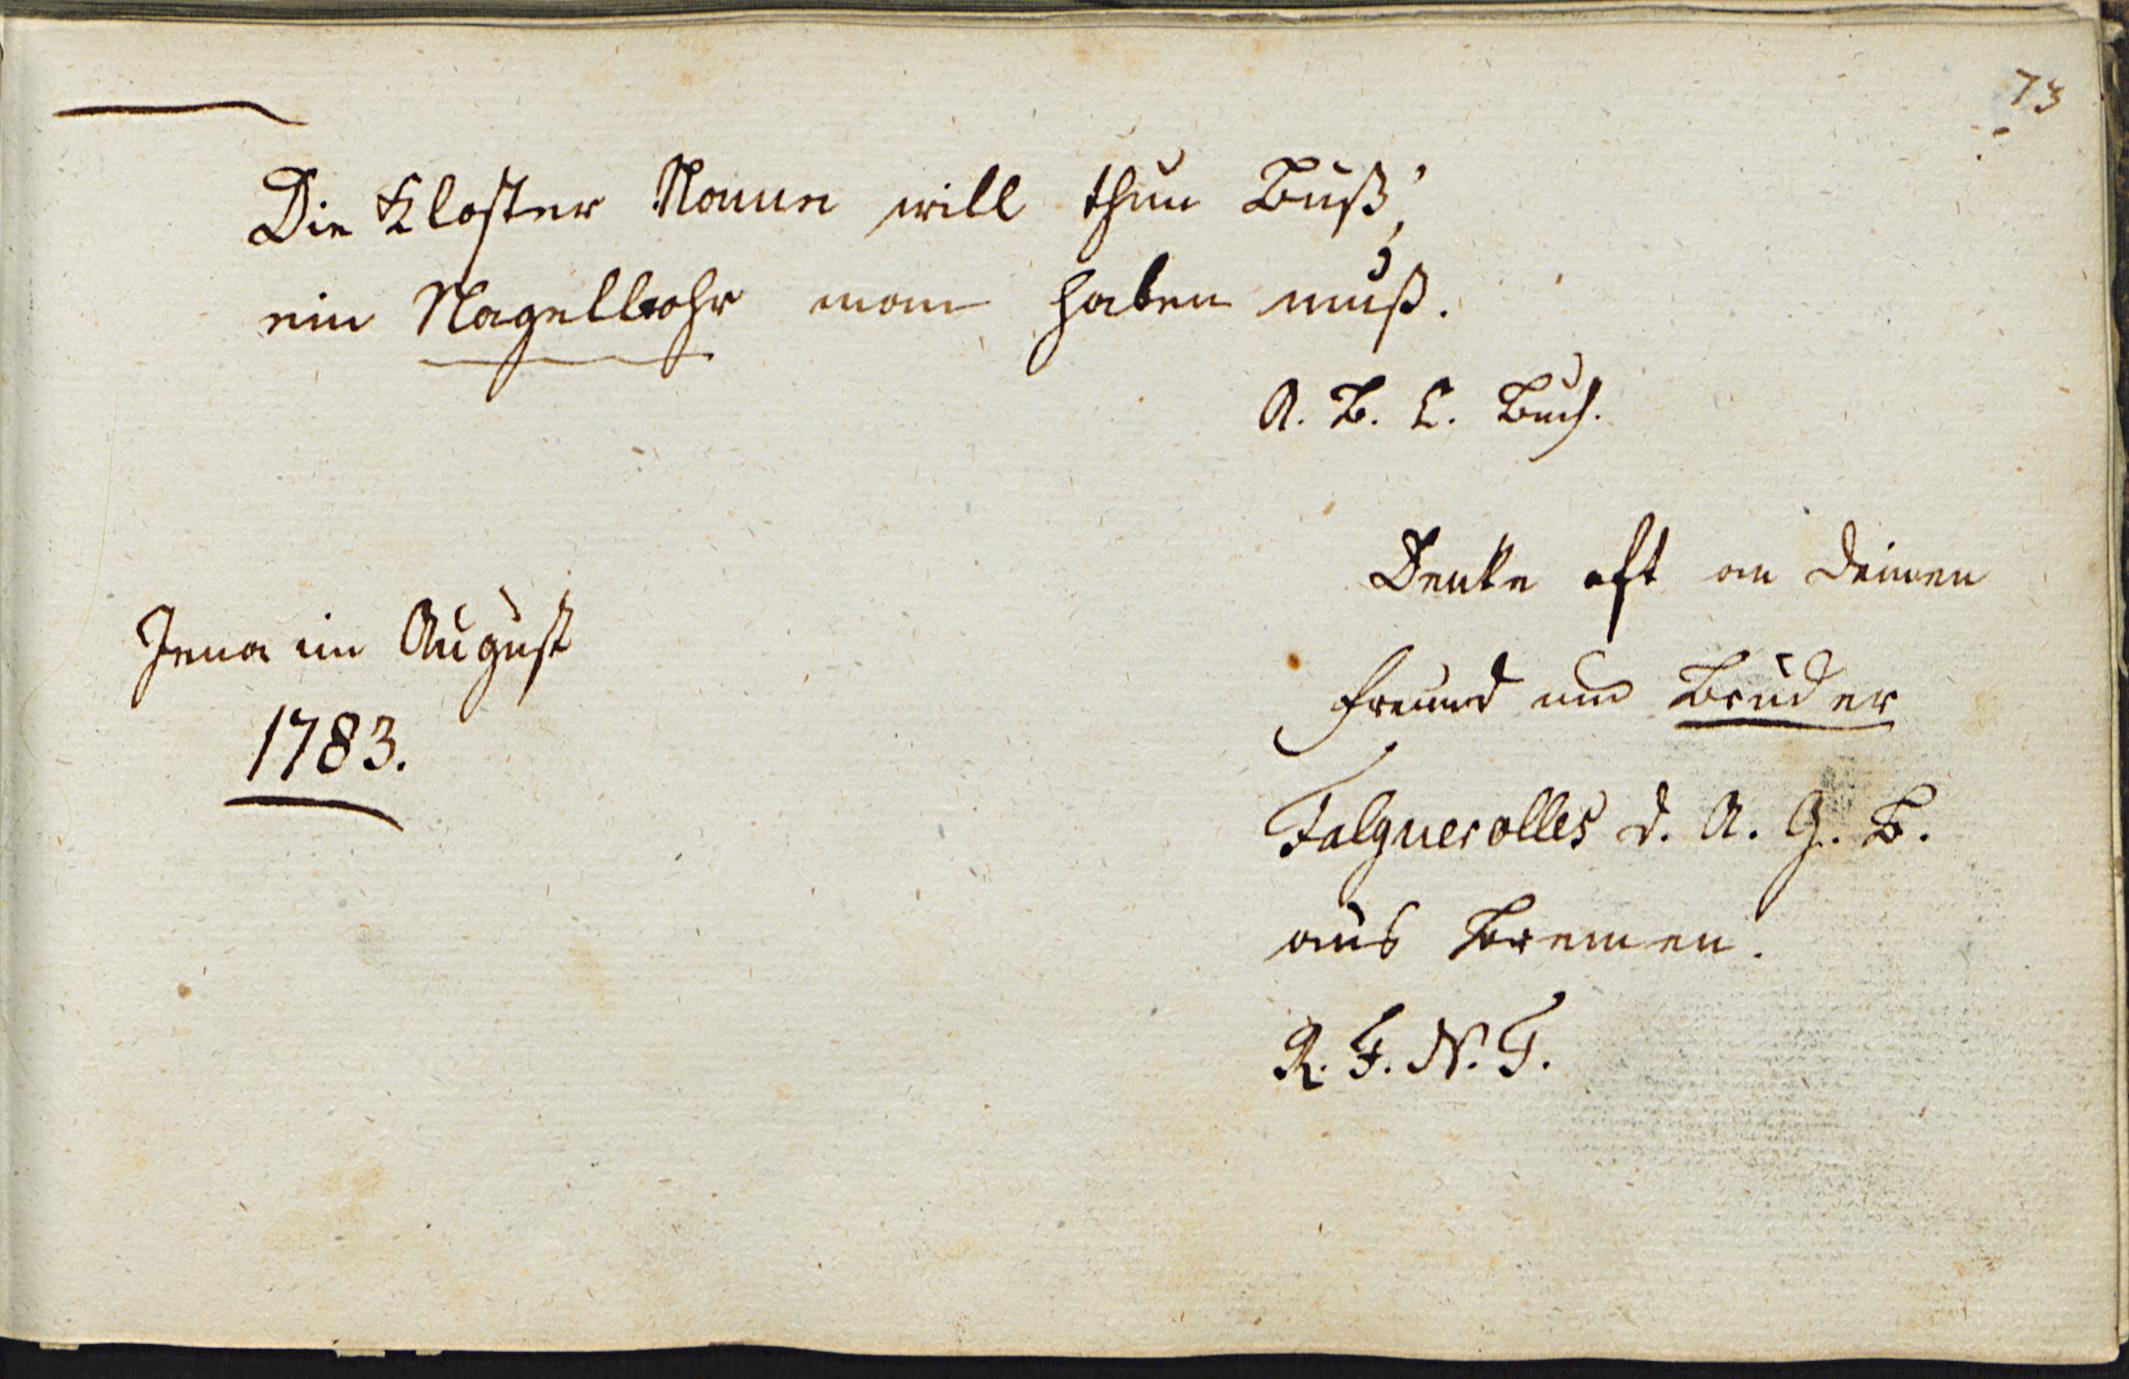 73
Die Kloster Nonne will thun Buß',
ein Nagelbohr man haben muß.
A. B. C. Buch.
Denke oft an deinen
Freund und Bruder
Falguerolles d. A. G. B.
aus Bremen.
R. F. N. F.
Jena im August
1783.